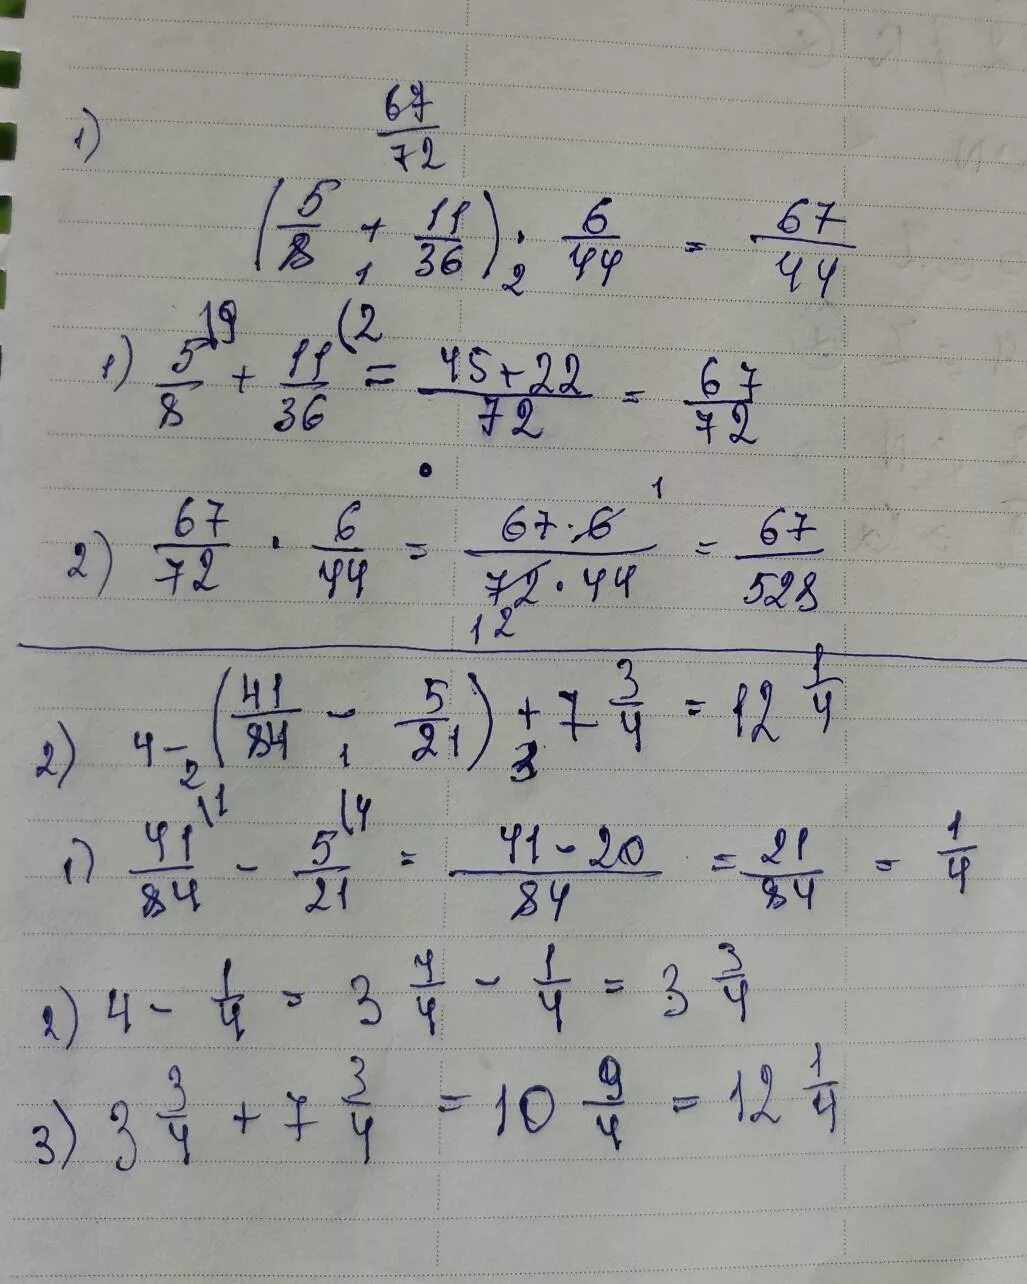 1) 67/72
(5/8 + 11/36) · 6/44 = 67/44
1 2
1) 5/8 (9 + 11/36 (2 = 45+22/72 = 67/72
2) 67/72 · 6/44 = 67·6/72·44 = 67/528
1
12
2) 4 - (41/84 - 5/21) + 7 3/4 = 12 1/4
2 1 3
1) 41/84 (1 - 5/21 (4 = 41-20/84 = 21/84 = 1/4
2) 4 - 1/4 = 3 4/4 - 1/4 = 3 3/4
3) 3 3/4 + 7 3/4 = 10 9/4 = 12 1/4